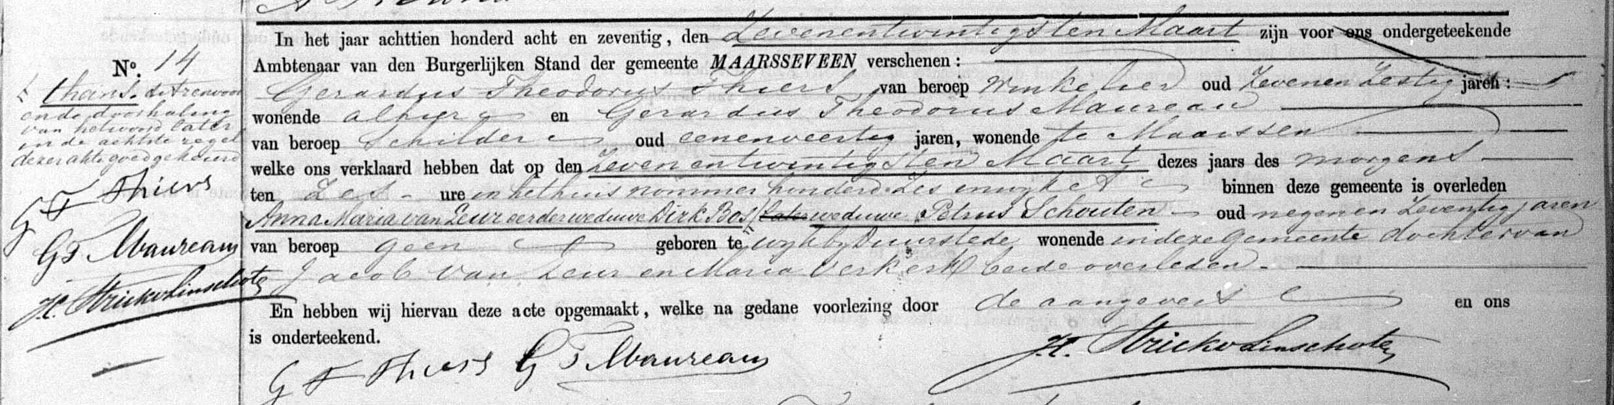 In het jaar achttien honderd acht en zeventig, den Zevenentwintigsten Maart zijn voor ons ondergeteekende
Ambtenaar van den Burgerlijken Stand der gemeente MAARSSEVEEN verschenen:
Gerardus Theodorus Thiers van beroep Winkelier oud Zevenen Zestig jaren:
wonende alhier en Gerardus Theodorus Maureau
van beroep Schilder oud eenenveertig jaren, wonende te Maarssen
welke ons verklaard hebben dat op den Zevenentwintigsten Maart dezes jaars des morgens
ten Zes ure in het huis nommer honderd zes in wijk A binnen deze gemeente is overleden
Anna Maria van Leur eerder weduwe Dirk Bos later weduwe Petrus Schouten oud negenen Zeventig jaren
van beroep geen geboren te wijk by Duurstede, wonende in deze Gemeente dochter van
Jacob van Leur en Maria Verkerk beide overleden.
En hebben wij hiervan deze acte opgemaakt, welke na gedane voorlezing door de aangevers en ons
is onderteekend.
G T Thiers G T Maureau H. Strick v Linschoten
No. 14
thans. de tienwoor
en de doorhaling
van het woord later
in de achtste regel
dezer akte goedgekeurd
G T Thiers
G T Maureau
H. Strick v Linschoten